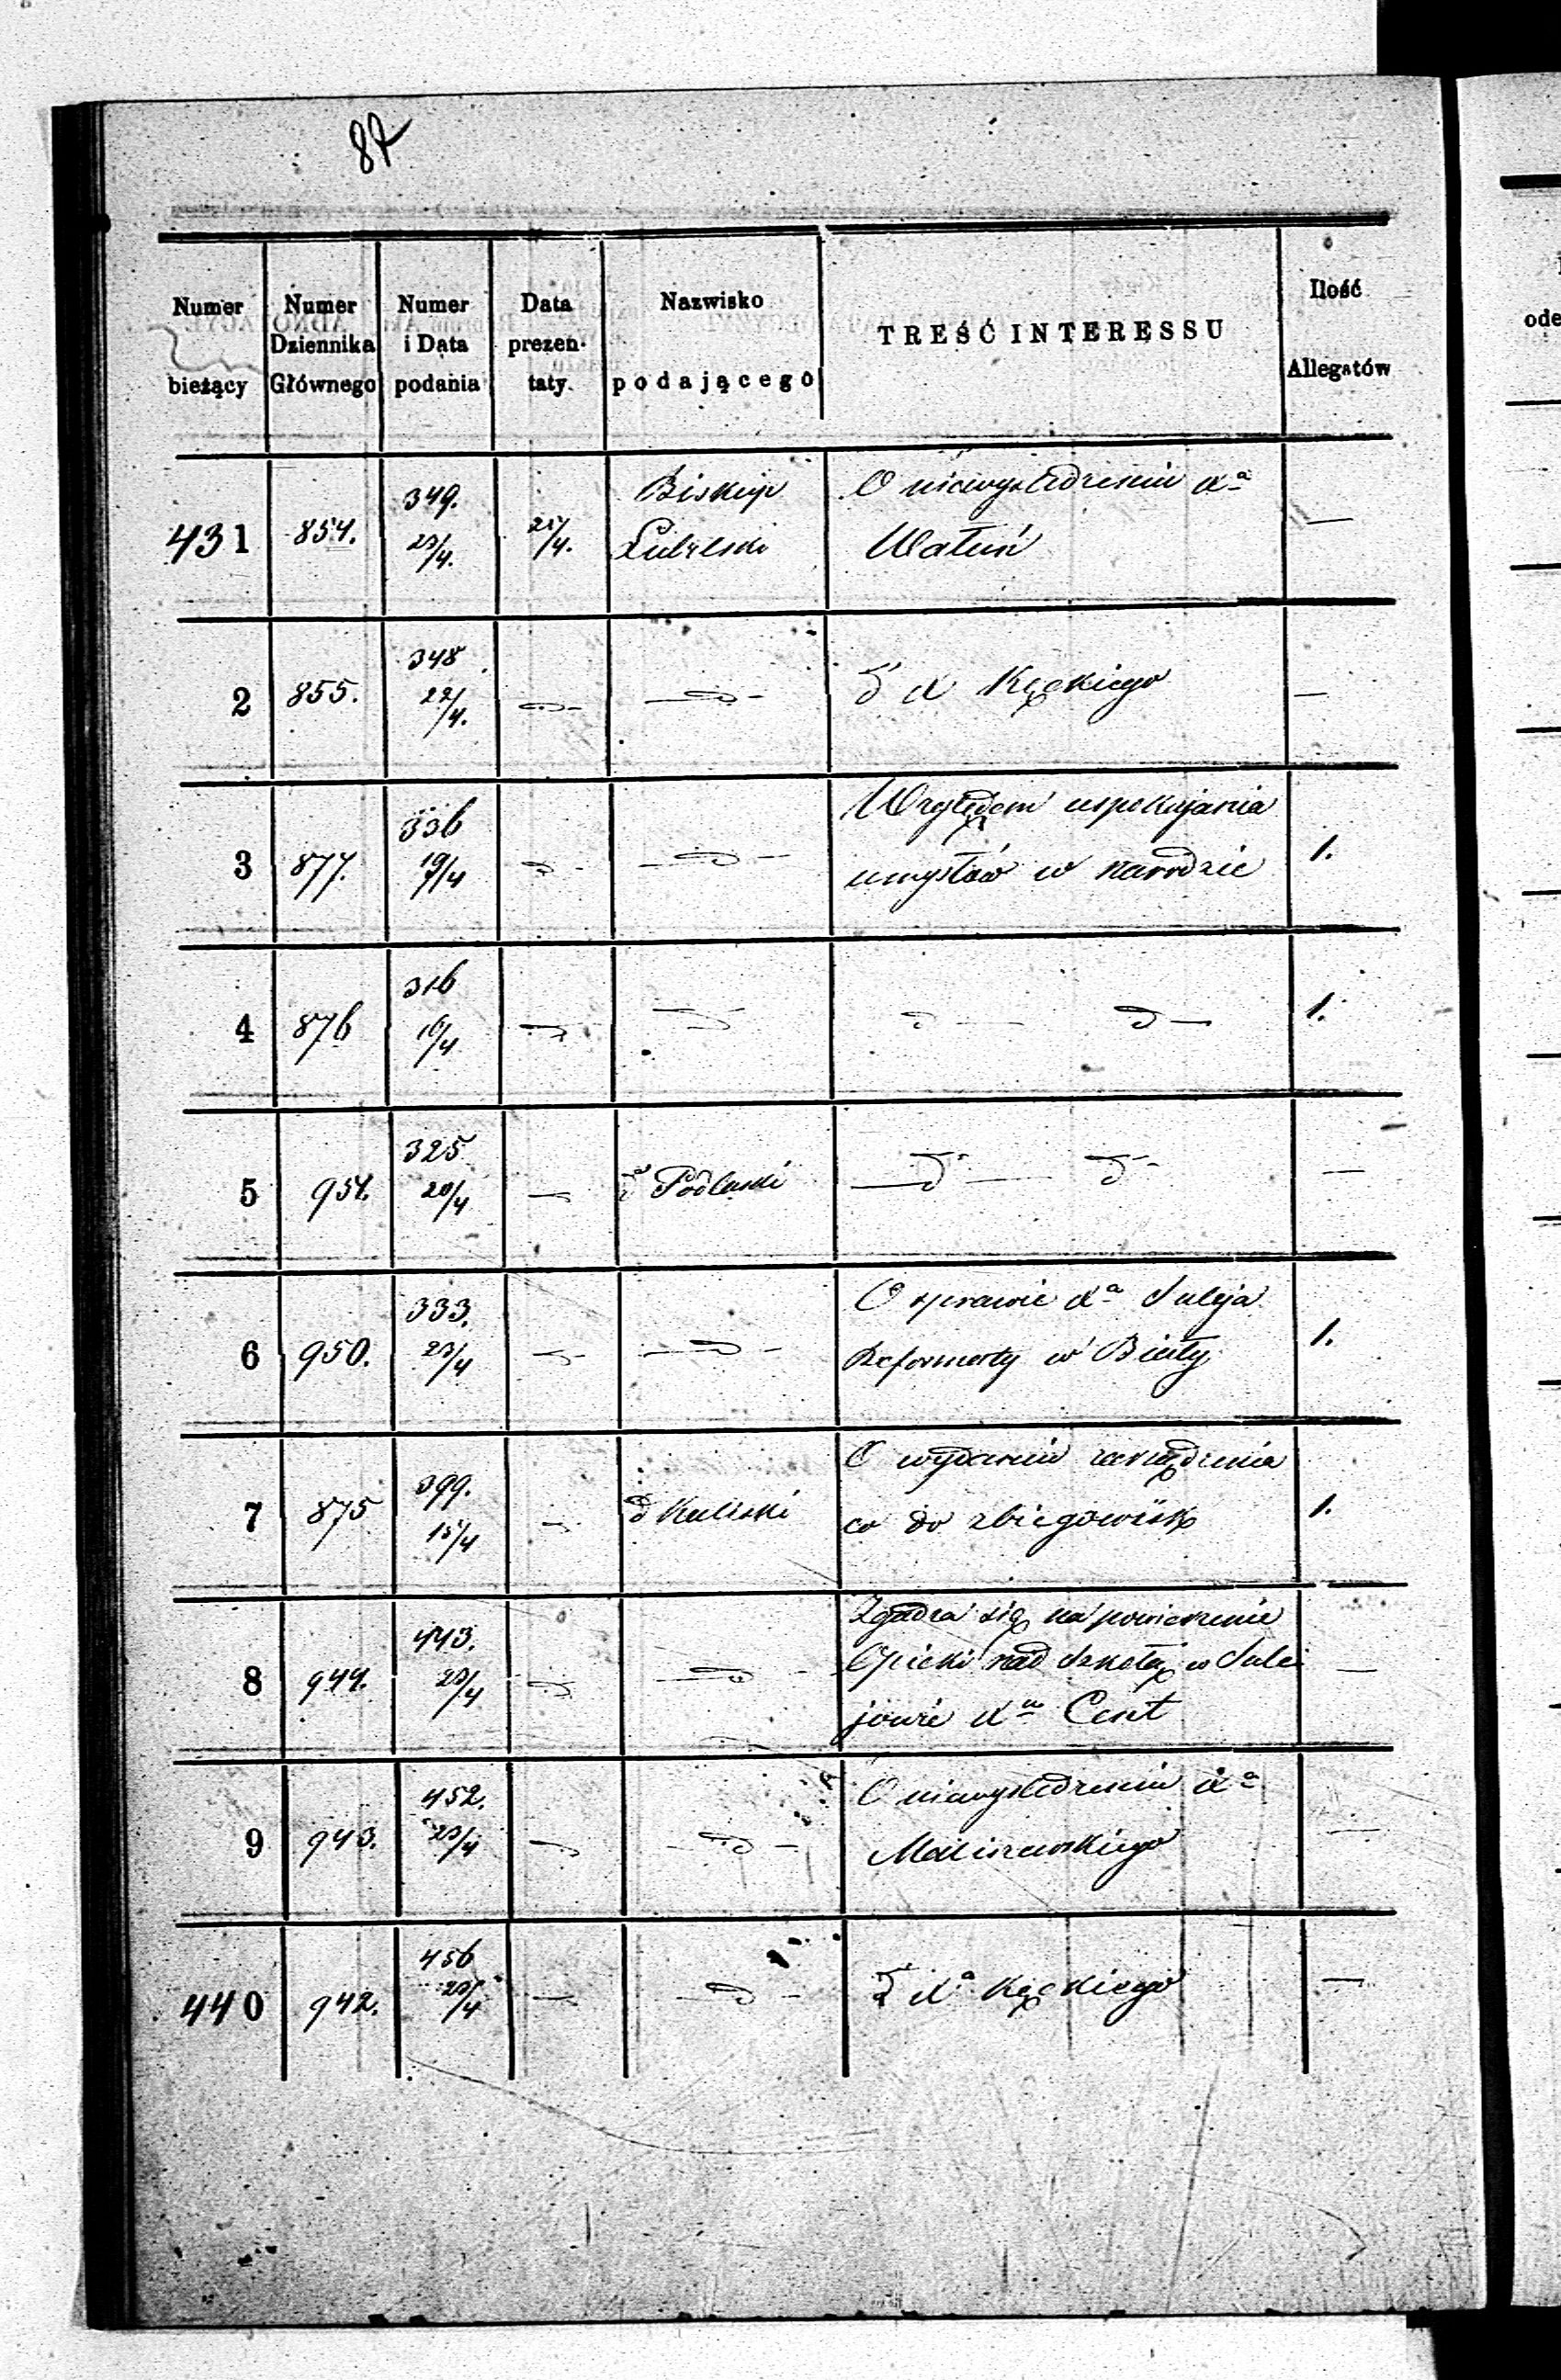 87
Numer bieżący
Numer Dziennika Głównego
Numer i Data podania
Data prezentaty
Nazwisko podającego
TREŚĆ INTERESSU
Ilość Allegatów
431 854. 349. 23/4. 25/4. Biskup Lubelski O niewyśledzeniu Xa Watuń —
2 855. 348 22/4. —"— —d— d° X Kąckiego —
3 877. 336 19/4 —"— —d— Względem uspokajania umysłów w narodzie 1.
4 876 316 16/4 —"— —d— —d— —d— 1.
5 954. 325 20/4 —"— d° Podlaski —d°— —d°— —
6 950. 333. 23/4 —"— —d— O sprawie Xa Suleja Reformaty w Biały 1.
7 875 399. 15/4 —"— d° Kaliski O wydaniu zarządzenia co do zbiegowisk 1.
8 944. 443. 20/4 —"— —d— Zgadza się na powierzenie Opieki nad Szkołą w Sulejowie Xu Cent —
9 943. 452. 23/4 —"— —d— O niewyśledzeniu Xa Maliszewskiego —
440 942. 456 20/4 —"— —d— d° Xa Kąckiego —